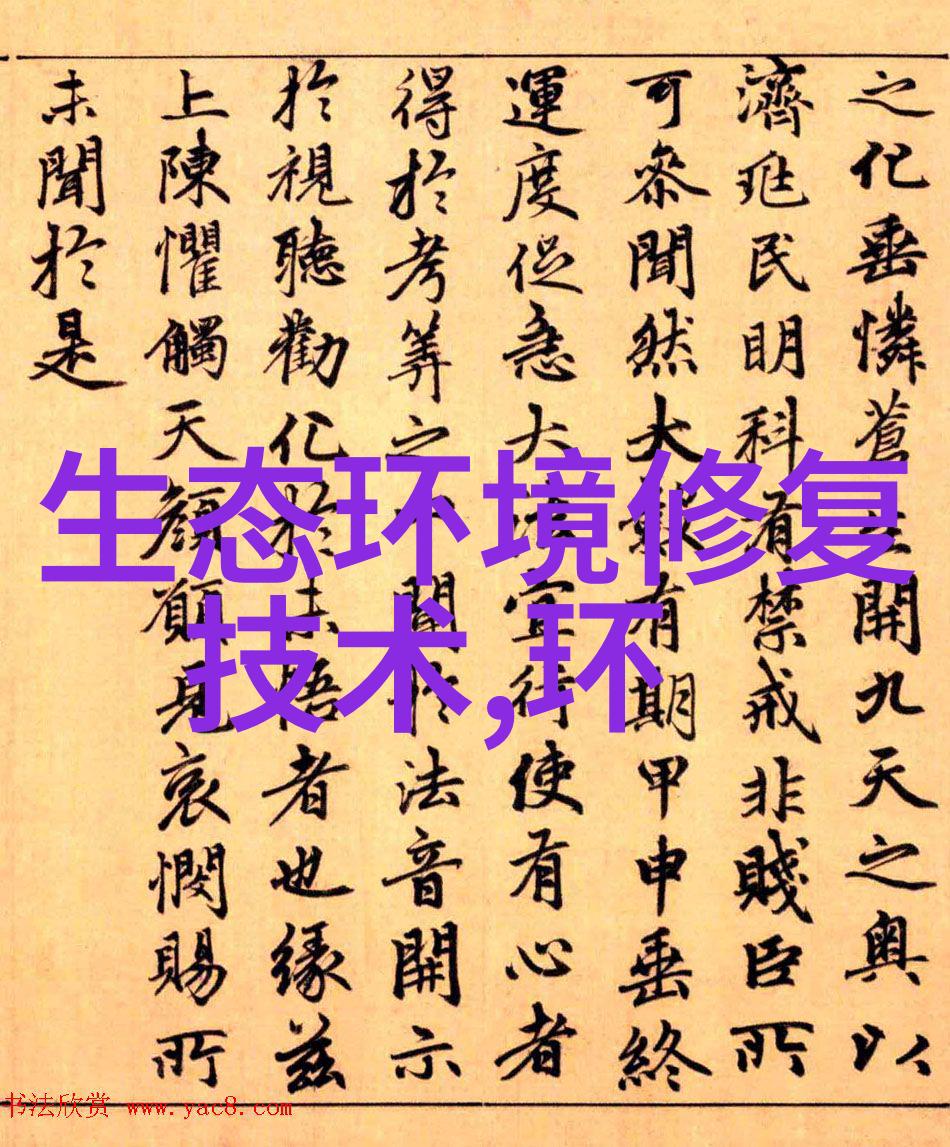 之化垂憐蒼生開九天之奥以
濟兆民明科有禁戒非賤臣所
可叅聞然大數有期甲申垂終
運度促急大法宜行使有心者
得於考筭之聞於法音開示
於視聽勸化於未悟者也緣茲
上陳懼觸天顏願見哀憫賜所
未聞於是
生态环境修复
技术,环
书法欣赏 www.yac8.com